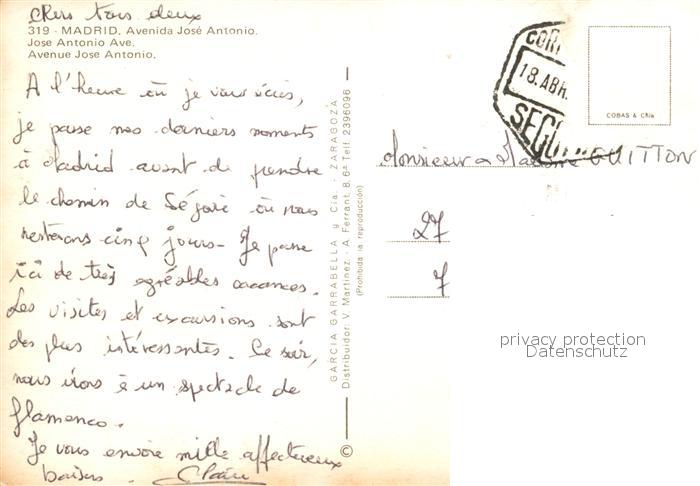 Chers tous deux
319 - MADRID. Avenida José Antonio.
Jose Antonio Ave.
Avenue Jose Antonio.
A l'heure où je vous écris,
je passe mes derniers moments
à Madrid avant de prendre
le chemin de Ségovie où nous
resterons cinq jours - Je passe
ici de très agréables vacances.
Les visites et excursions sont
des plus intéressantes. Ce soir,
nous irons à un spectacle de
flamenco.
Je vous envoie mille affectueux
baisers. Claire
GARCIA GARRABELLA y Cia. - ZARAGOZA
Distribuidor: V. Martinez - A. Ferrant, 8, 6ª Telf. 2396096
(Prohibida la reproducción)
©
CORR
18.ABR.
SEGO
COBAS & Cia
Monsieur & Madame GUITTON
27
7
privacy protection
Datenschutz